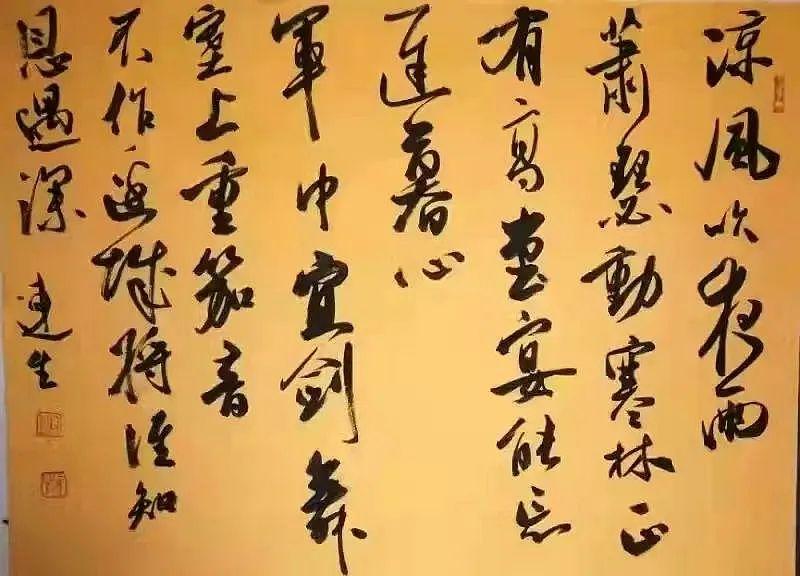 涼風吹夜雨
蕭瑟動寒林正
有高堂宴能忘
遲暮心
軍中宜劍舞
塞上重笳音
不作邊城將誰知
恩遇深 生